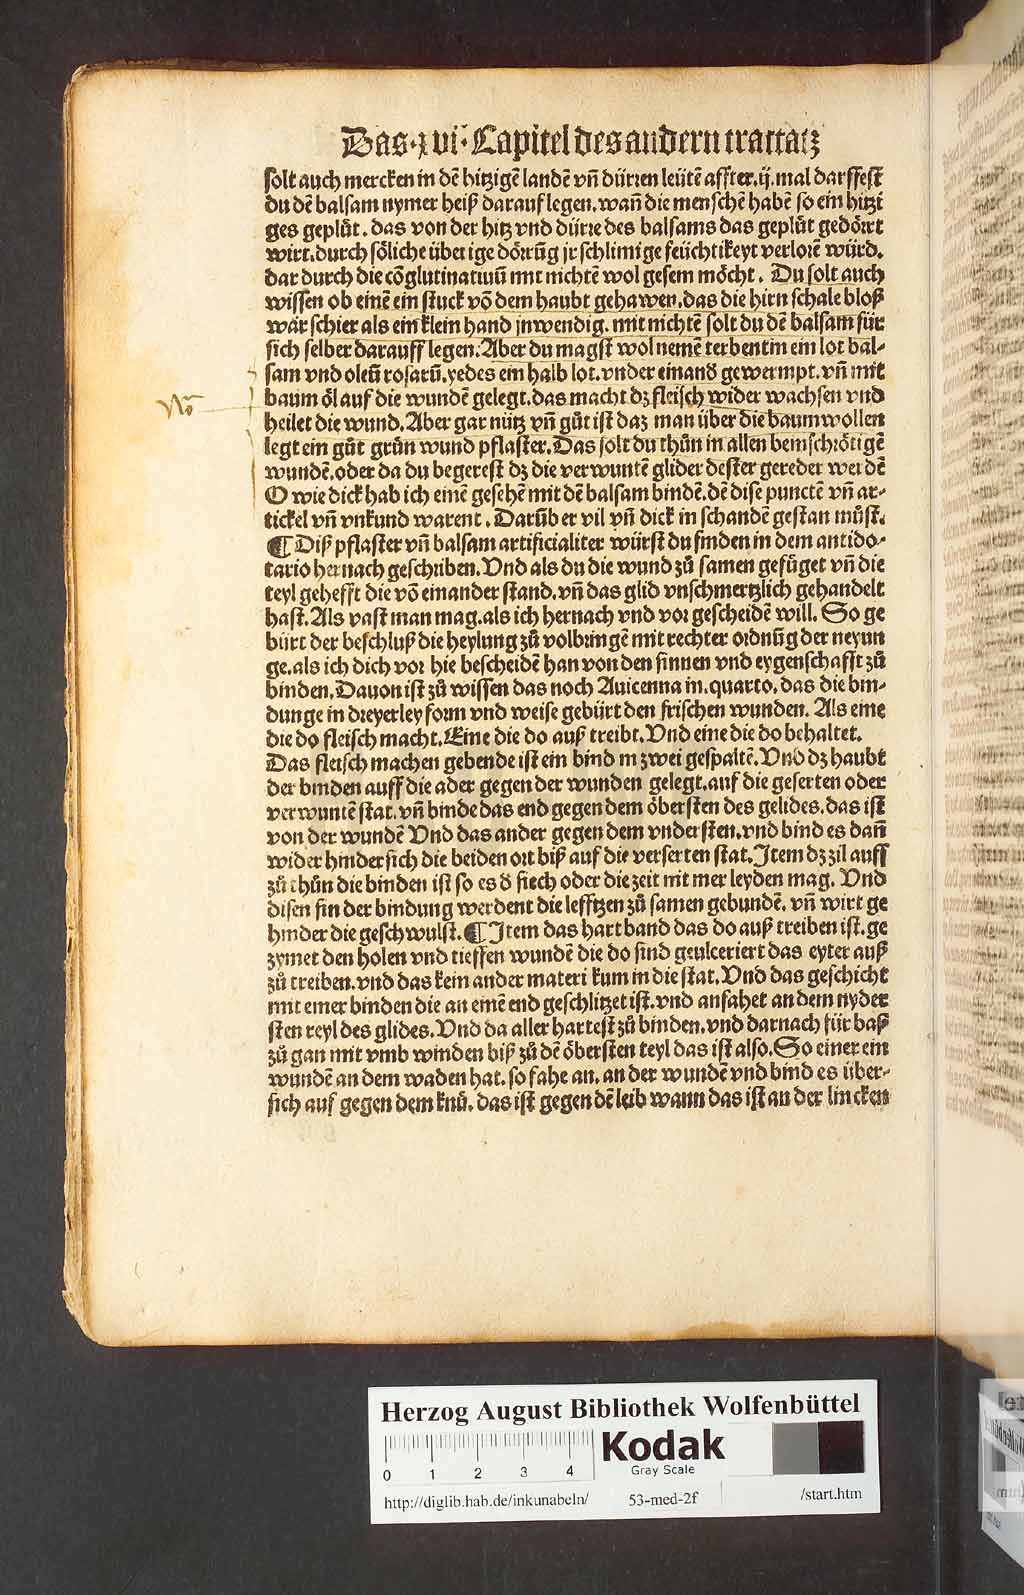 Das·xvi·Capitel des andern tractatz
solt auch mercken in dē hitzigē landē vñ dürren leütē affter.ij.mal darffest
du dē balsam nymer heiß darauf legen. wañ die menschē habē so ein hitzi
ges geplůt. das von der hitz vnd dürre des balsams das geplůt gedörrt
wirt. durch söliche überige dörrūg jr schlimige feüchtikeyt verlorē würd.
dar durch die cōglutinatiuū mit nichtē wol gesein möcht. Du solt auch
wissen ob einē ein stuck vō dem haubt gehawen. das die hirn schale bloß
wär schier als ein klein hand jnwendig. mit nichtē solt du dē balsam für
sich selber darauff legen. Aber du magst wol nemē terbentin ein lot bal-
sam vnd oleū rosarū. yedes ein halb lot. vnder einand gewermpt. vñ mit
Nō
baum öl auf die wundē gelegt. das macht dz fleisch wider wachsen vnd
heilet die wund. Aber gar nütz vñ gůt ist daz man über die baumwollen
legt ein gůt grün wund pflaster. Das solt du thůn in allen beinschrötigē
wundē. oder da du begerest dz die verwuntē glider dester gereder werdē
O wie dick hab ich einē gesehē mit dē balsam bindē. dē dise punctē vñ ar-
tickel vñ vnkund warent. Darüber vil vñ dick in schandē gestan můst.
¶ Diß pflaster vñ balsam artificialiter würst du finden in dem antido-
tario hernach geschriben. Vnd als du die wund zů samen gefüget vñ die
teyl gehefft die vō einander stand. vñ das glid vnschmertzlich gehandelt
hast. Als vast man mag. als ich hernach vnd vor gescheidē will. So ge
bürt der beschluß die heylung zů volbringē mit rechter ordnūg der neyun
ge. als ich dich vor hie bescheidē han von den sinnen vnd eygenschafft zů
binden. Dauon ist zů wissen das noch Auicenna in. quarto. das die bin-
dunge in dreyerley form vnd weise gebürt den frischen wunden. Als eine
die do fleisch macht. Eine die do auß treibt. Vnd eine die do behaltet.
Das fleisch machen gebende ist ein bind in zwei gespaltē. Vnd dz haubt
der binden auff die ader gegen der wunden gelegt. auf die geserten oder
verwuntē stat. vñ binde das end gegen dem öbersten des gelides. das ist
von der wundē Vnd das ander gegen dem vndersten. vnd bind es dañ
wider hindersich die beiden ort biß auf die verserten stat. Item dz zil auff
zů thůn die binden ist so es d siech oder die zeit nit mer leyden mag. Vnd
disen sin der bindung werdent die lefftzen zů samen gebundē. vñ wirt ge
hinder die geschwulst. ¶ Item das hart band das do auß treiben ist. ge
zymet den holen vnd tieffen wundē die do sind geulceriert das eyter auß
zů treiben. vnd das kein ander materi kum in die stat. Vnd das geschicht
mit einer binden die an einē end geschlitzet ist. vnd anfahet an dem nyder
sten teyl des glides. Vnd da aller hartest zů binden. vnd darnach für baß
zů gan mit vmb winden biß zů dē öbersten teyl das ist also. So einer ein
wundē an dem waden hat. so fahe an. an der wundē vnd bind es über-
sich auf gegen dem knů. das ist gegen dē leib wann das ist an der lincken
Herzog August Bibliothek Wolfenbüttel
Kodak
Gray Scale
0 1 2 3 4
http://diglib.hab.de/inkunabeln/ 53-med-2f /start.htm